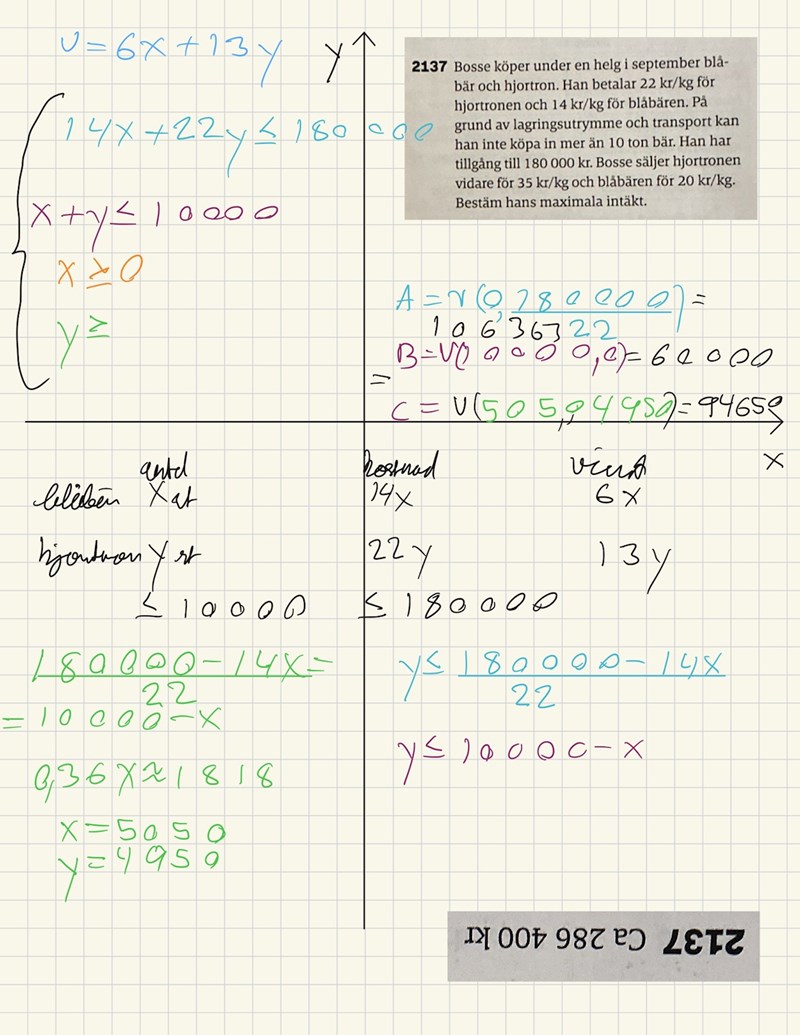 U = 6x + 13y
y
2137 Bosse köper under en helg i september blå-
bär och hjortron. Han betalar 22 kr/kg för
hjortronen och 14 kr/kg för blåbären. På
grund av lagringsutrymme och transport kan
han inte köpa in mer än 10 ton bär. Han har
tillgång till 180 000 kr. Bosse säljer hjortronen
vidare för 35 kr/kg och blåbären för 20 kr/kg.
Bestäm hans maximala intäkt.
14x + 22y ≤ 180 000
x + y ≤ 10000
x ≥ 0
y ≥
A = v(0, 180000/22) =
106363
B = V(10000,0) = 60000
=
C = V(5050, 4950) = 94650
x
antal kostnad vinst
blåbär x st 14x 6x
hjortron y st 22y 13y
≤ 10000 ≤ 180000
180000 - 14x / 22 =
= 10000 - x
0,36x ≈ 1818
x = 5050
y = 4950
y ≤ 180000 - 14x / 22
y ≤ 10000 - x
2137 Ca 286 400 kr